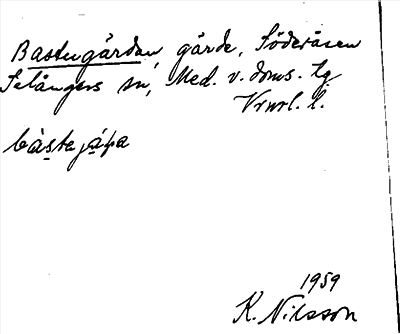 Bastugårdan, gärde, Söderåsen
Selångers sn, Med. v. doms. tg
Vnrl. l.
bàstagáṛa
1959
K. Nilsson